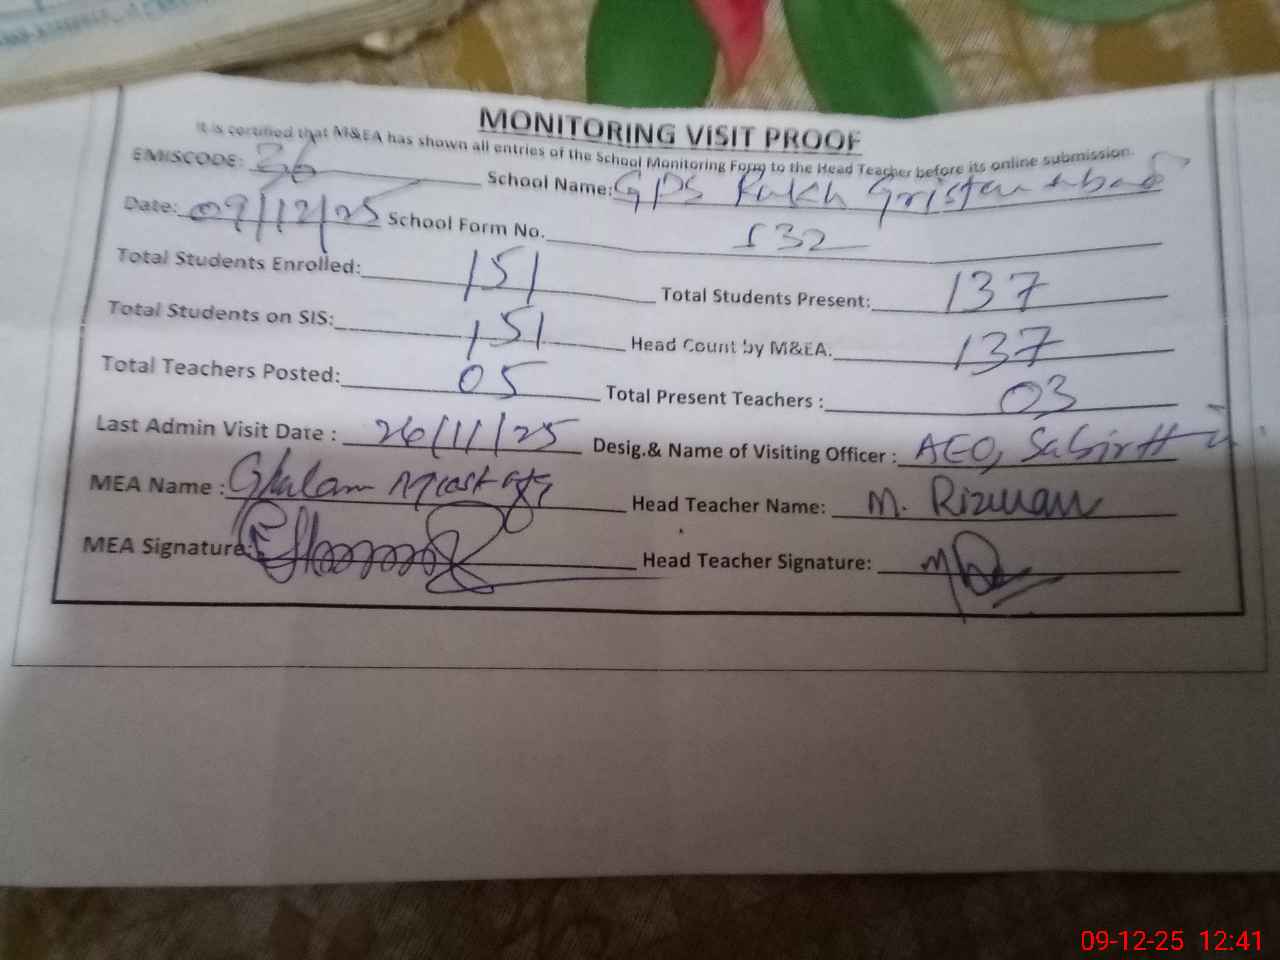 MONITORING VISIT PROOF
It is certified that M&EA has shown all entries of the School Monitoring Form to the Head Teacher before its online submission.
EMISCODE: 36 School Name: GPS Rakh
Date: 09/12/25 School Form No. 132
Total Students Enrolled: 151 Total Students Present: 137
Total Students on SIS: 151 Head Count by M&EA. 137
Total Teachers Posted: 05 Total Present Teachers : 03
Last Admin Visit Date : 26/11/25 Desig.& Name of Visiting Officer : AEO, Sabir
MEA Name : Ghulam Head Teacher Name: M. Rizwan
MEA Signature: Head Teacher Signature:
09-12-25 12:41